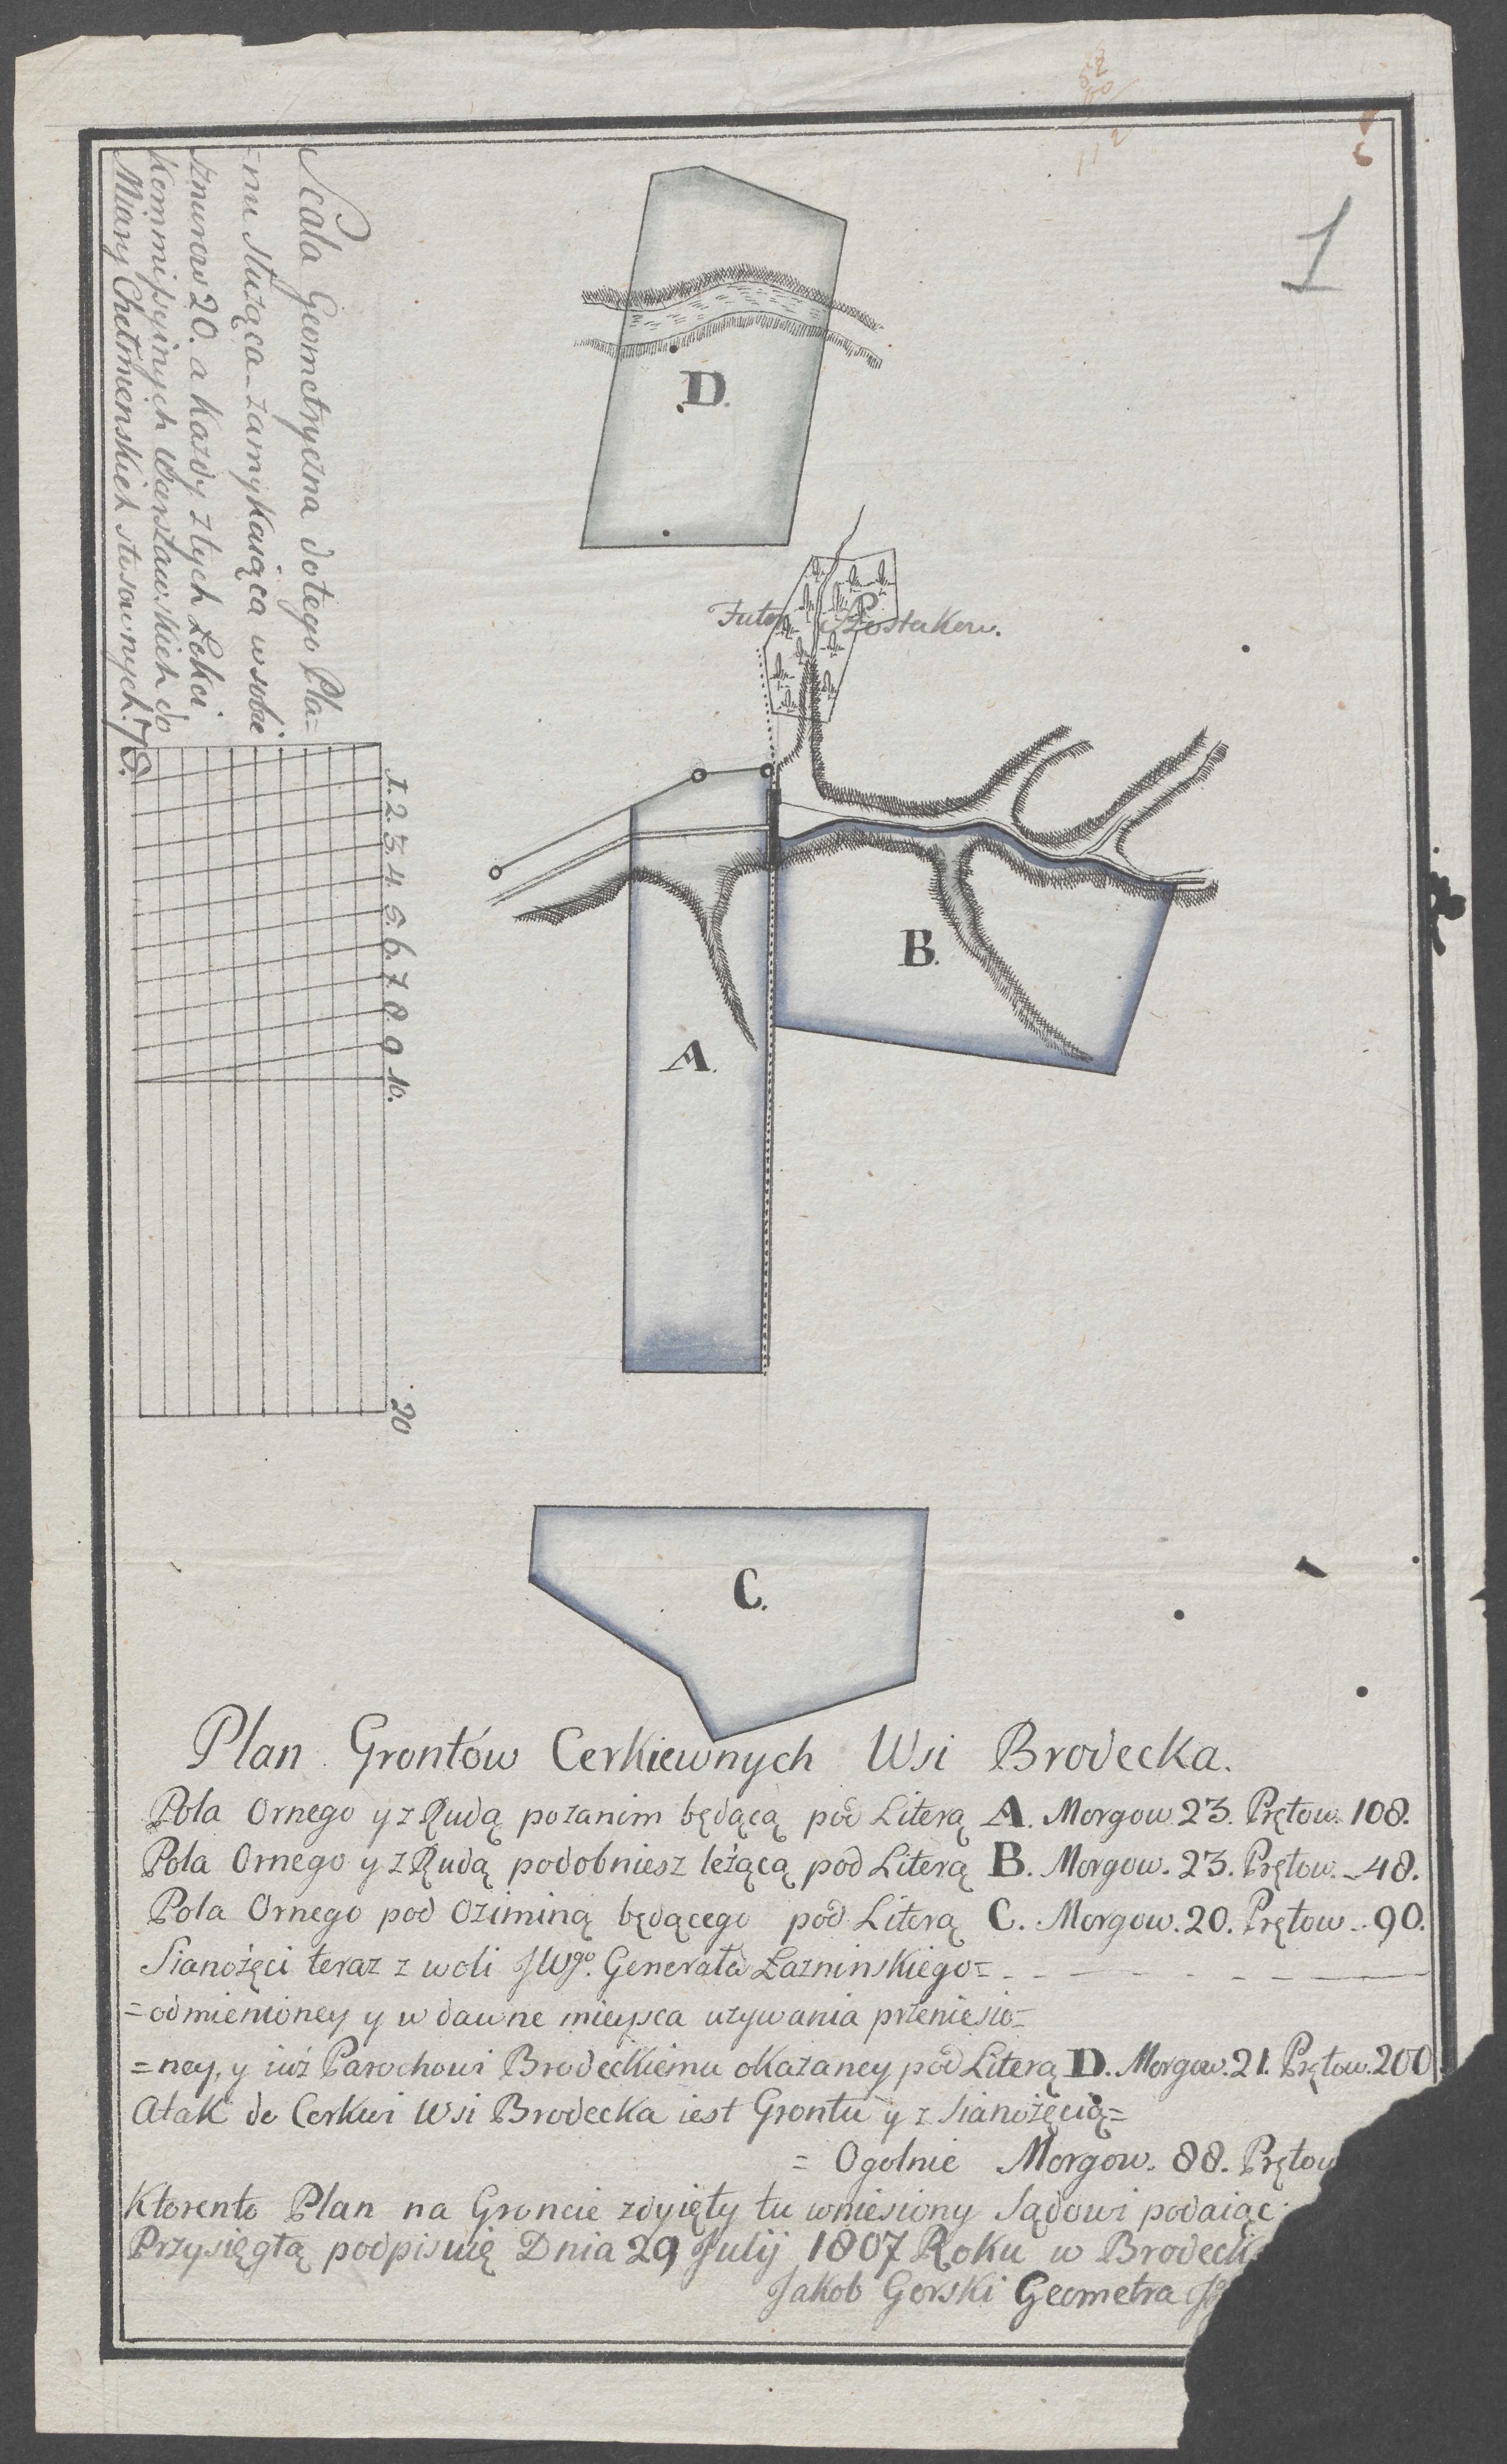 52
60
112
1
Scala Geometryczna do tego Pla=
=nu słuząca zamykaiąca w sobie
sznurow 20. a kazdy z tych Łokci
Kommissyinych Warszawskich do
Miary Chełmienskich stosownych. 75.
1. 2. 3. 4. 5. 6. 7. 8. 9 10. 20
D.
Futor Szostakow.
B.
A.
C.
Plan Grontów Cerkiewnych Wsi Brodecka.
Pola Ornego y z Rudą pozanim będącą pod Literą A. Morgow 23. Prętow. 108.
Pola Ornego y z Rudą podobniesz leżącą pod Literą B. Morgow. 23. Prętow. 48.
Pola Ornego pod Oziminą będącego pod Literą C. Morgow. 20. Prętow. 90.
Sianożęci teraz z woli JWgo. Generała Łazninskiego=
=odmienioney y w dawne mieysca uzywania przeniesio=
=ney, y iuż Parochowi Brodeckiemu okazaney pod Literą D. Morgow. 21. Prętow. 200
Atak do Cerkwi Wsi Brodecka iest Grontu y z sianożęcią=
= Ogolnie Morgow. 88. Prętow
Ktorento Plan na Groncie zdyięty tu wniesiony Sądowi podaiąc
Przysięgłą podpisuię Dnia 29 Julij 1807 Roku w Brodeck
Jakob Gorski Geometra